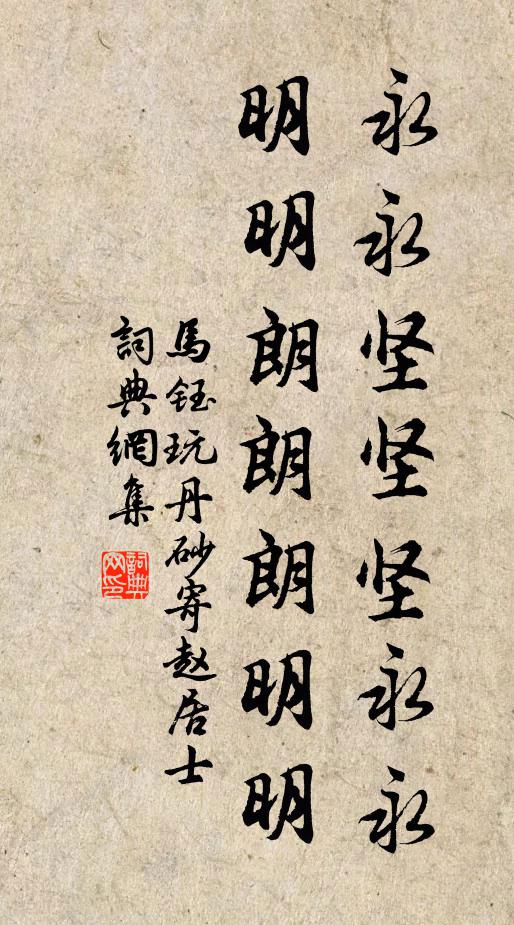 永永坚坚坚永永
明明朗朗朗明明
馬鈺玩丹砂寄赵居士
詞典網集
詞典网印